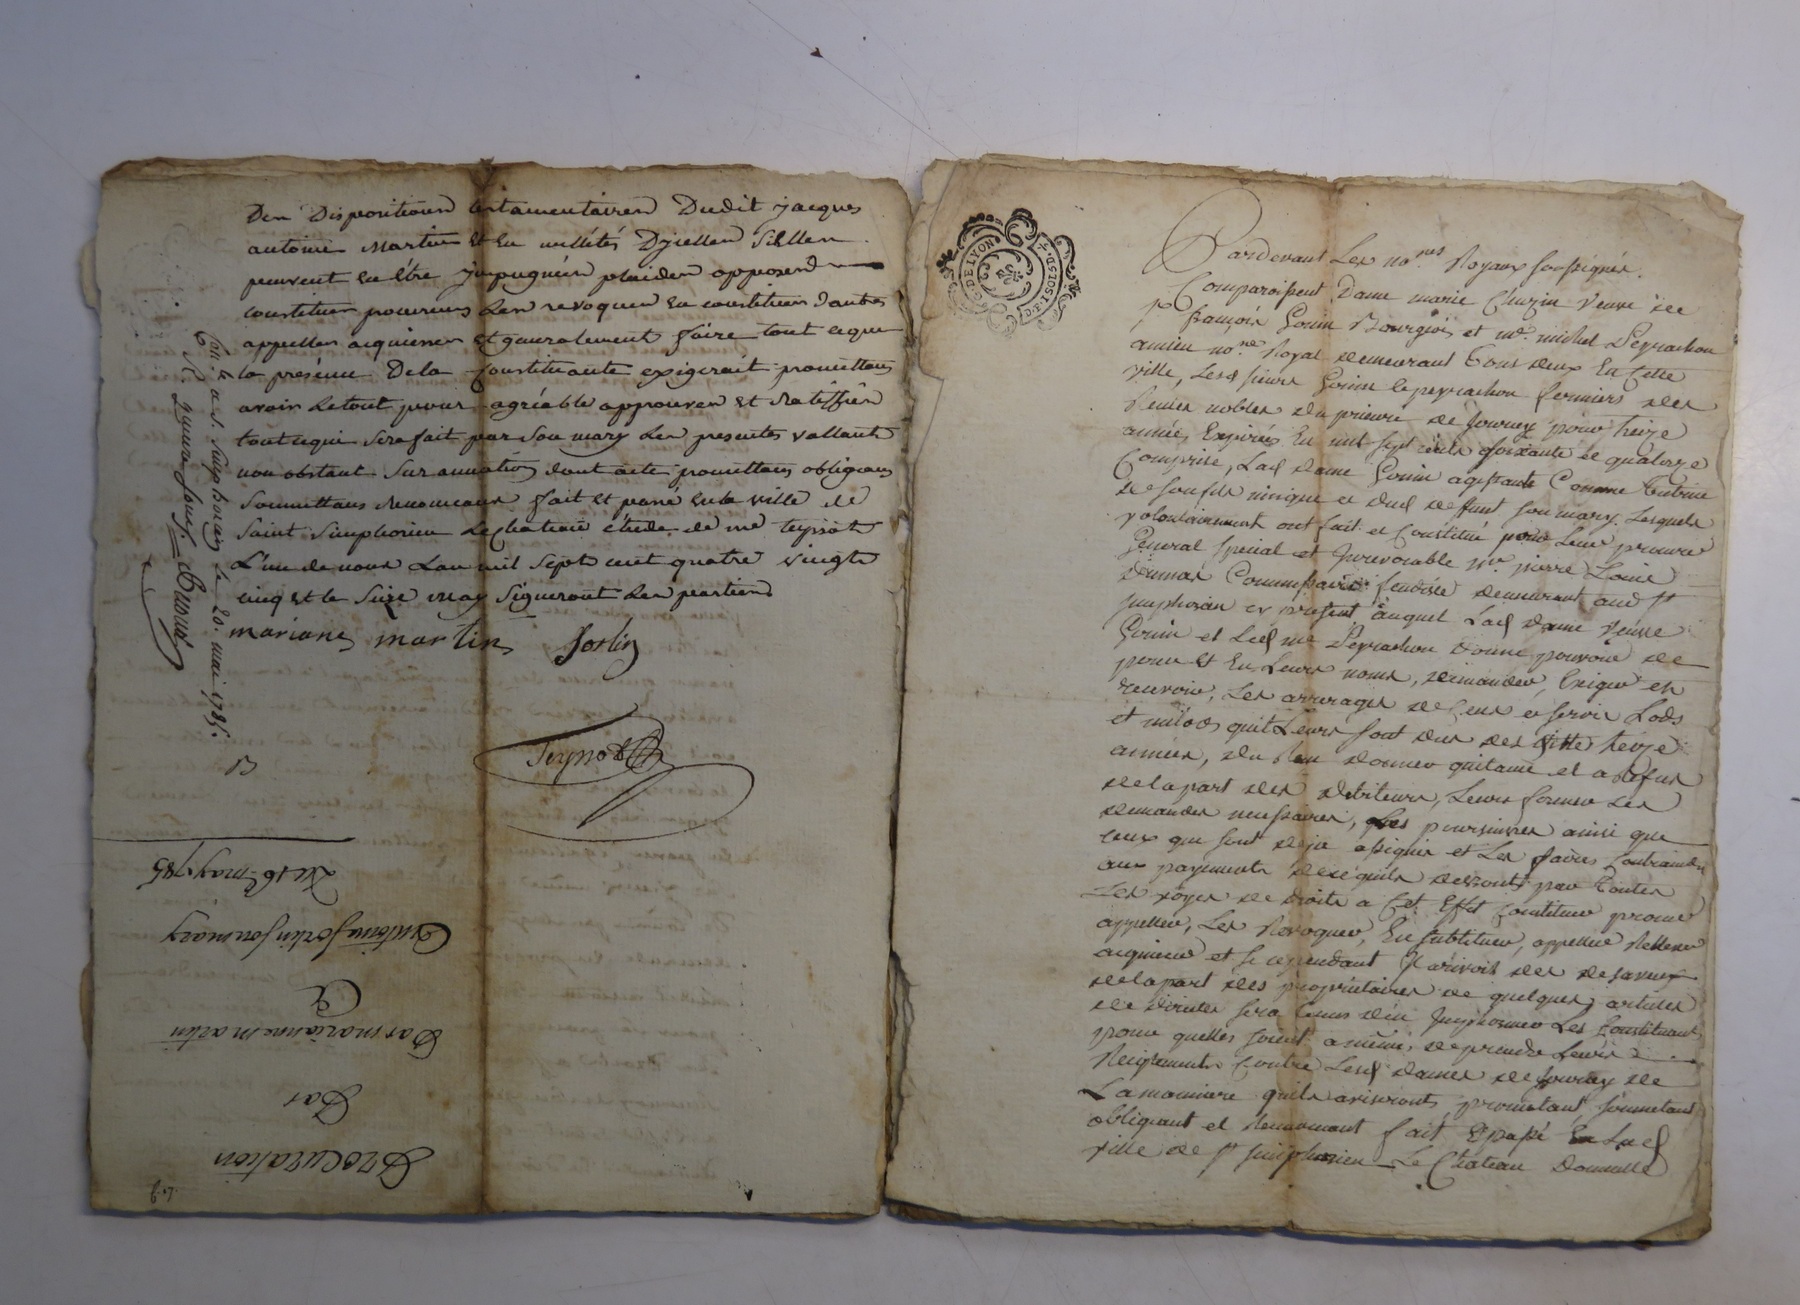 Des Dispositions testamentaires Dudit jacques
antoine Martin et en nullités Dycelles Sielles
peuvent en être jmpugnées plaider opposer
constituer procureurs les revoquer en constituer dautres
appeller acquiescer et generalement faire tout ceque
la présence Dela Constituante exigerait promettant
avoir letout pour agréable approuver et Ratiffier
tout cequi Sera fait par Son mary Les presentes vallants
non obstant Surannation dont acte promettans obligeans
Soumettans Renonceans fait et passé en la ville de
Saint Simphorien Lechateau étude de me teyssot
L'un de nous Lan mil Sept cent quatre vingts
cinq et le Saize may Signeront Les parties
mariane martin Jorlin
Con.lé a s. Simphorien le 20. mai 1785.
R. quinze sous
B
Procuration
Par
Par marianne martin
A
Antoine Jorlin son mary
Du 16e may 1785
G. DE LYON
Pardevant Les no.res Royaux soussignés.
Comparoissent Dame marie Chuzin Veuve de
françois Gonin Bourgeois et me. michel Peyrachon
ancien no.re Royal demeurant tous deux En Cette
ville, Lesd sieurs Gonin le peyrachon fermiers des
Rentes nobles du prieuré de Jourcey pour treize
années Expirées En mil sept cents soixante et quatorze
Comprise, Lad Dame Gonin agissante Comme tutrice
de son fils unique et dud deffunt son mary. Lesquels
volontairement ont fait et Constitué pour Leur procureur
General special et Jrrevocable me. pierre Louis
Commissaire feudiste demeurant aud st
simphorien cy present, auquel Lad Dame veuve
Gonin et Led me Peyrachon donne pouvoir de
pour et En Leurs noms, demander, Exiger et
recevoir, Les arrerages de Cens et servis Lods
et milods quit Leurs sont dus des dittes treize
années, du Reçu donner quitance et a Refus
delapart des debiteurs, Leurs former les
demandes necessaires, poursuivres ainsi que
ceux qui sont deja assignés et Les faires Contraindre
aux payements desequils devront par toutes
Les voyes de droits a Cet Effet Constituer procureur
appeller, Les Revoquer, En substituer, appeller Rellever
acquiescer et si cependant Jl arivoit des desaveux
delapart des proprietaires de quelques articles
de directes sera tenus d'en jnformer Les Constituants
pour quelles soient a même, de prendre Leurs
Reiglements Contre Lesd dames de Jourcey de
La manniere quils aviseronts, promettant soumetant
obligeant et Renonceant fait et passé En Lad
ville de st simphorien Le Chateau